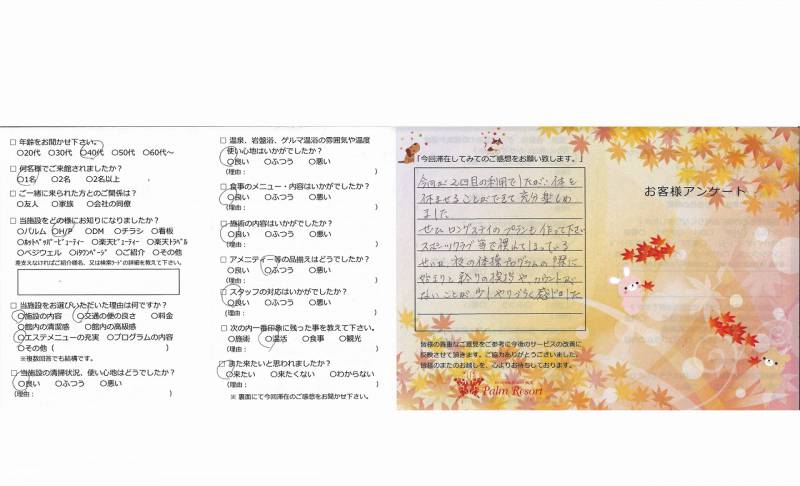 □ 年齢をお聞かせ下さい。
○20代 ○30代 ○40代 ○50代 ○60代～
□ 何名様でご来館されましたか？
○1名 ○2名 ○2名以上
□ ご一緒に来られた方とのご関係は？
○友人 ○家族 ○会社の同僚
□ 当施設をどの様にお知りになりましたか？
○パルム ○H/P ○DM ○チラシ ○看板
○ﾎｯﾄﾍﾟｯﾊﾟｰﾋﾞｭｰﾃｨｰ ○楽天ﾋﾞｭｰﾃｨｰ ○楽天ﾄﾗﾍﾞﾙ
○ベジウェル ○iﾀｳﾝﾍﾟｰｼﾞ ○ご紹介 ○その他
差支えなければご紹介様名、又は検索ﾜｰﾄﾞの詳細を教えて下さい。
□ 当施設をお選びいただいた理由は何ですか？
○施設の内容 ○交通の便の良さ ○料金
○館内の清潔感 ○館内の高級感
○エステメニューの充実 ○プログラムの内容
○その他（ ）
※複数回答でも結構です。
□ 当施設の清掃状況、使い心地はどうでしたか？
○良い ○ふつう ○悪い
（理由： ）
□ 温泉、岩盤浴、ゲルマ温浴の雰囲気や温度
使い心地はいかがでしたか？
○良い ○ふつう ○悪い
（理由： ）
□ 食事のメニュー・内容はいかがでしたか？
○良い ○ふつう ○悪い
（理由： ）
□ 施術の内容はいかがでしたか？
○良い ○ふつう ○悪い
（理由： ）
□ アメニティー等の品揃えはどうでしたか？
○良い ○ふつう ○悪い
（理由： ）
□ スタッフの対応はいかがでしたか？
○良い ○ふつう ○悪い
（理由： ）
□ 次の内一番印象に残った事を教えて下さい。
○施術 ○温活 ○食事 ○観光
（理由： ）
□ また来たいと思われましたか？
○来たい ○来たくない ○わからない
（理由： ）
※ 裏面にて今回滞在のご感想をお聞かせ下さい。
「今回滞在してみてのご感想をお願い致します。」
今回が2回目の利用でしたが、体を
休ませることができて充分楽しめ
ました
ぜひロングステイのプランも作って下さい
スポーツクラブ等で慣れてしまっている
せいか、夜の体操プログラムの際に
始まりと終りの挨拶や、カウントが
ないことが少しやりづらく感じました
皆様の貴重なご意見をご参考に今後のサービスの改善に
反映させて頂きます。ご協力ありがとうございました。
皆様のまたのお越しを、心よりお待ちしております。
Palm Resort
お客様アンケート